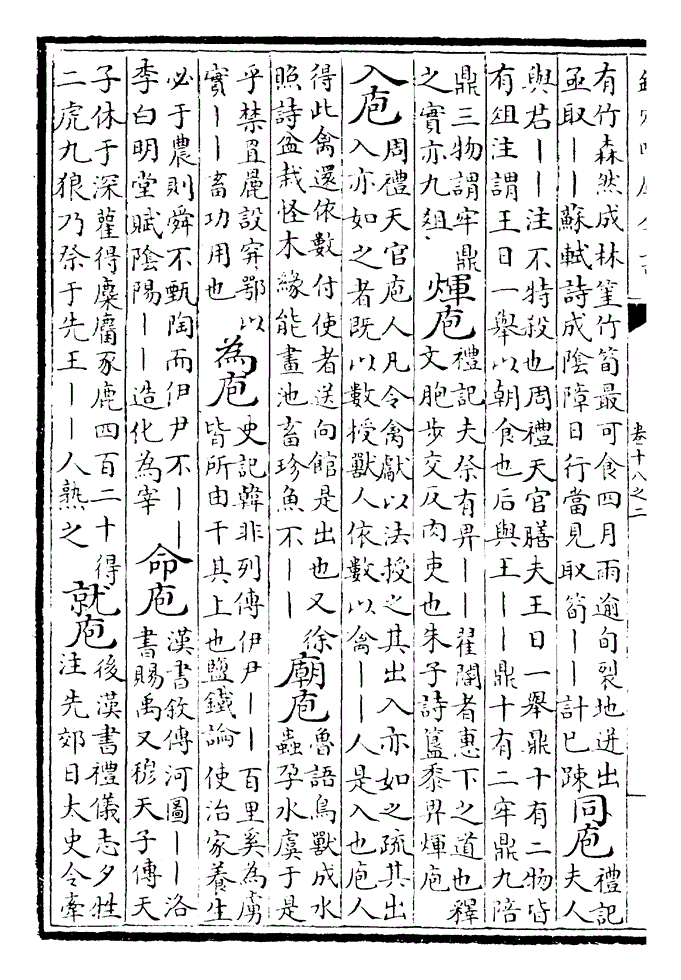 卷十八之二
有竹森然成林篁竹筍最可食四月雨逾旬裂地迸出
亟取丨丨蘇軾詩成陰障日行當見取筍丨丨計已疎
同庖
禮記
夫人
與君丨丨注不特殺也周禮天官膳夫王日一舉鼎十有二物皆
有俎注謂王日一舉以朝食也后與王丨丨鼎十有二牢鼎九陪
鼎三物謂牢鼎
之實亦九俎
煇庖
禮記夫祭有畀丨丨翟閽者惠下之道也釋
文胞步交反肉吏也朱子詩簋黍畀煇庖
入庖
周禮天官庖人凡令禽獻以法授之其出入亦如之疏其出
入亦如之者既以數授獸人依數以禽丨丨人是入也庖人
得此禽還依數付使者送向館是出也又徐
照詩盆栽怪木緣能畫池畜珍魚不丨丨
廟庖
魯語鳥獸成水
蟲孕水虞于是
乎禁罝麗設穽鄂以
實丨丨畜功用也
為庖
史記韓非列傳伊尹丨丨百里奚為虜
皆所由干其上也鹽鐵論使治家養生
必于農則舜不甄陶而伊尹不丨丨
李白明堂賦陰陽丨丨造化為宰
命庖
漢書敘傳河圖丨丨洛
書賜禹又穆天子傳天
子休于深雚得麋麕豕鹿四百二十得
二虎九狼乃祭于先王丨丨人熟之
就庖
後漢書禮儀志夕牲
注先郊日太史令牽